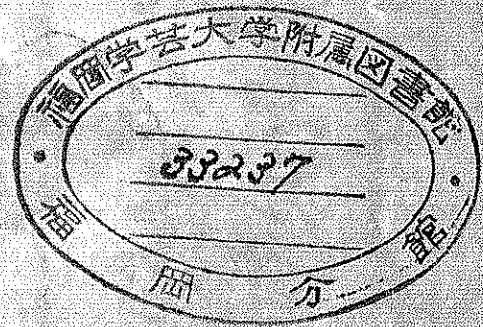 福岡学芸大学附属図書館
33237
福岡分館